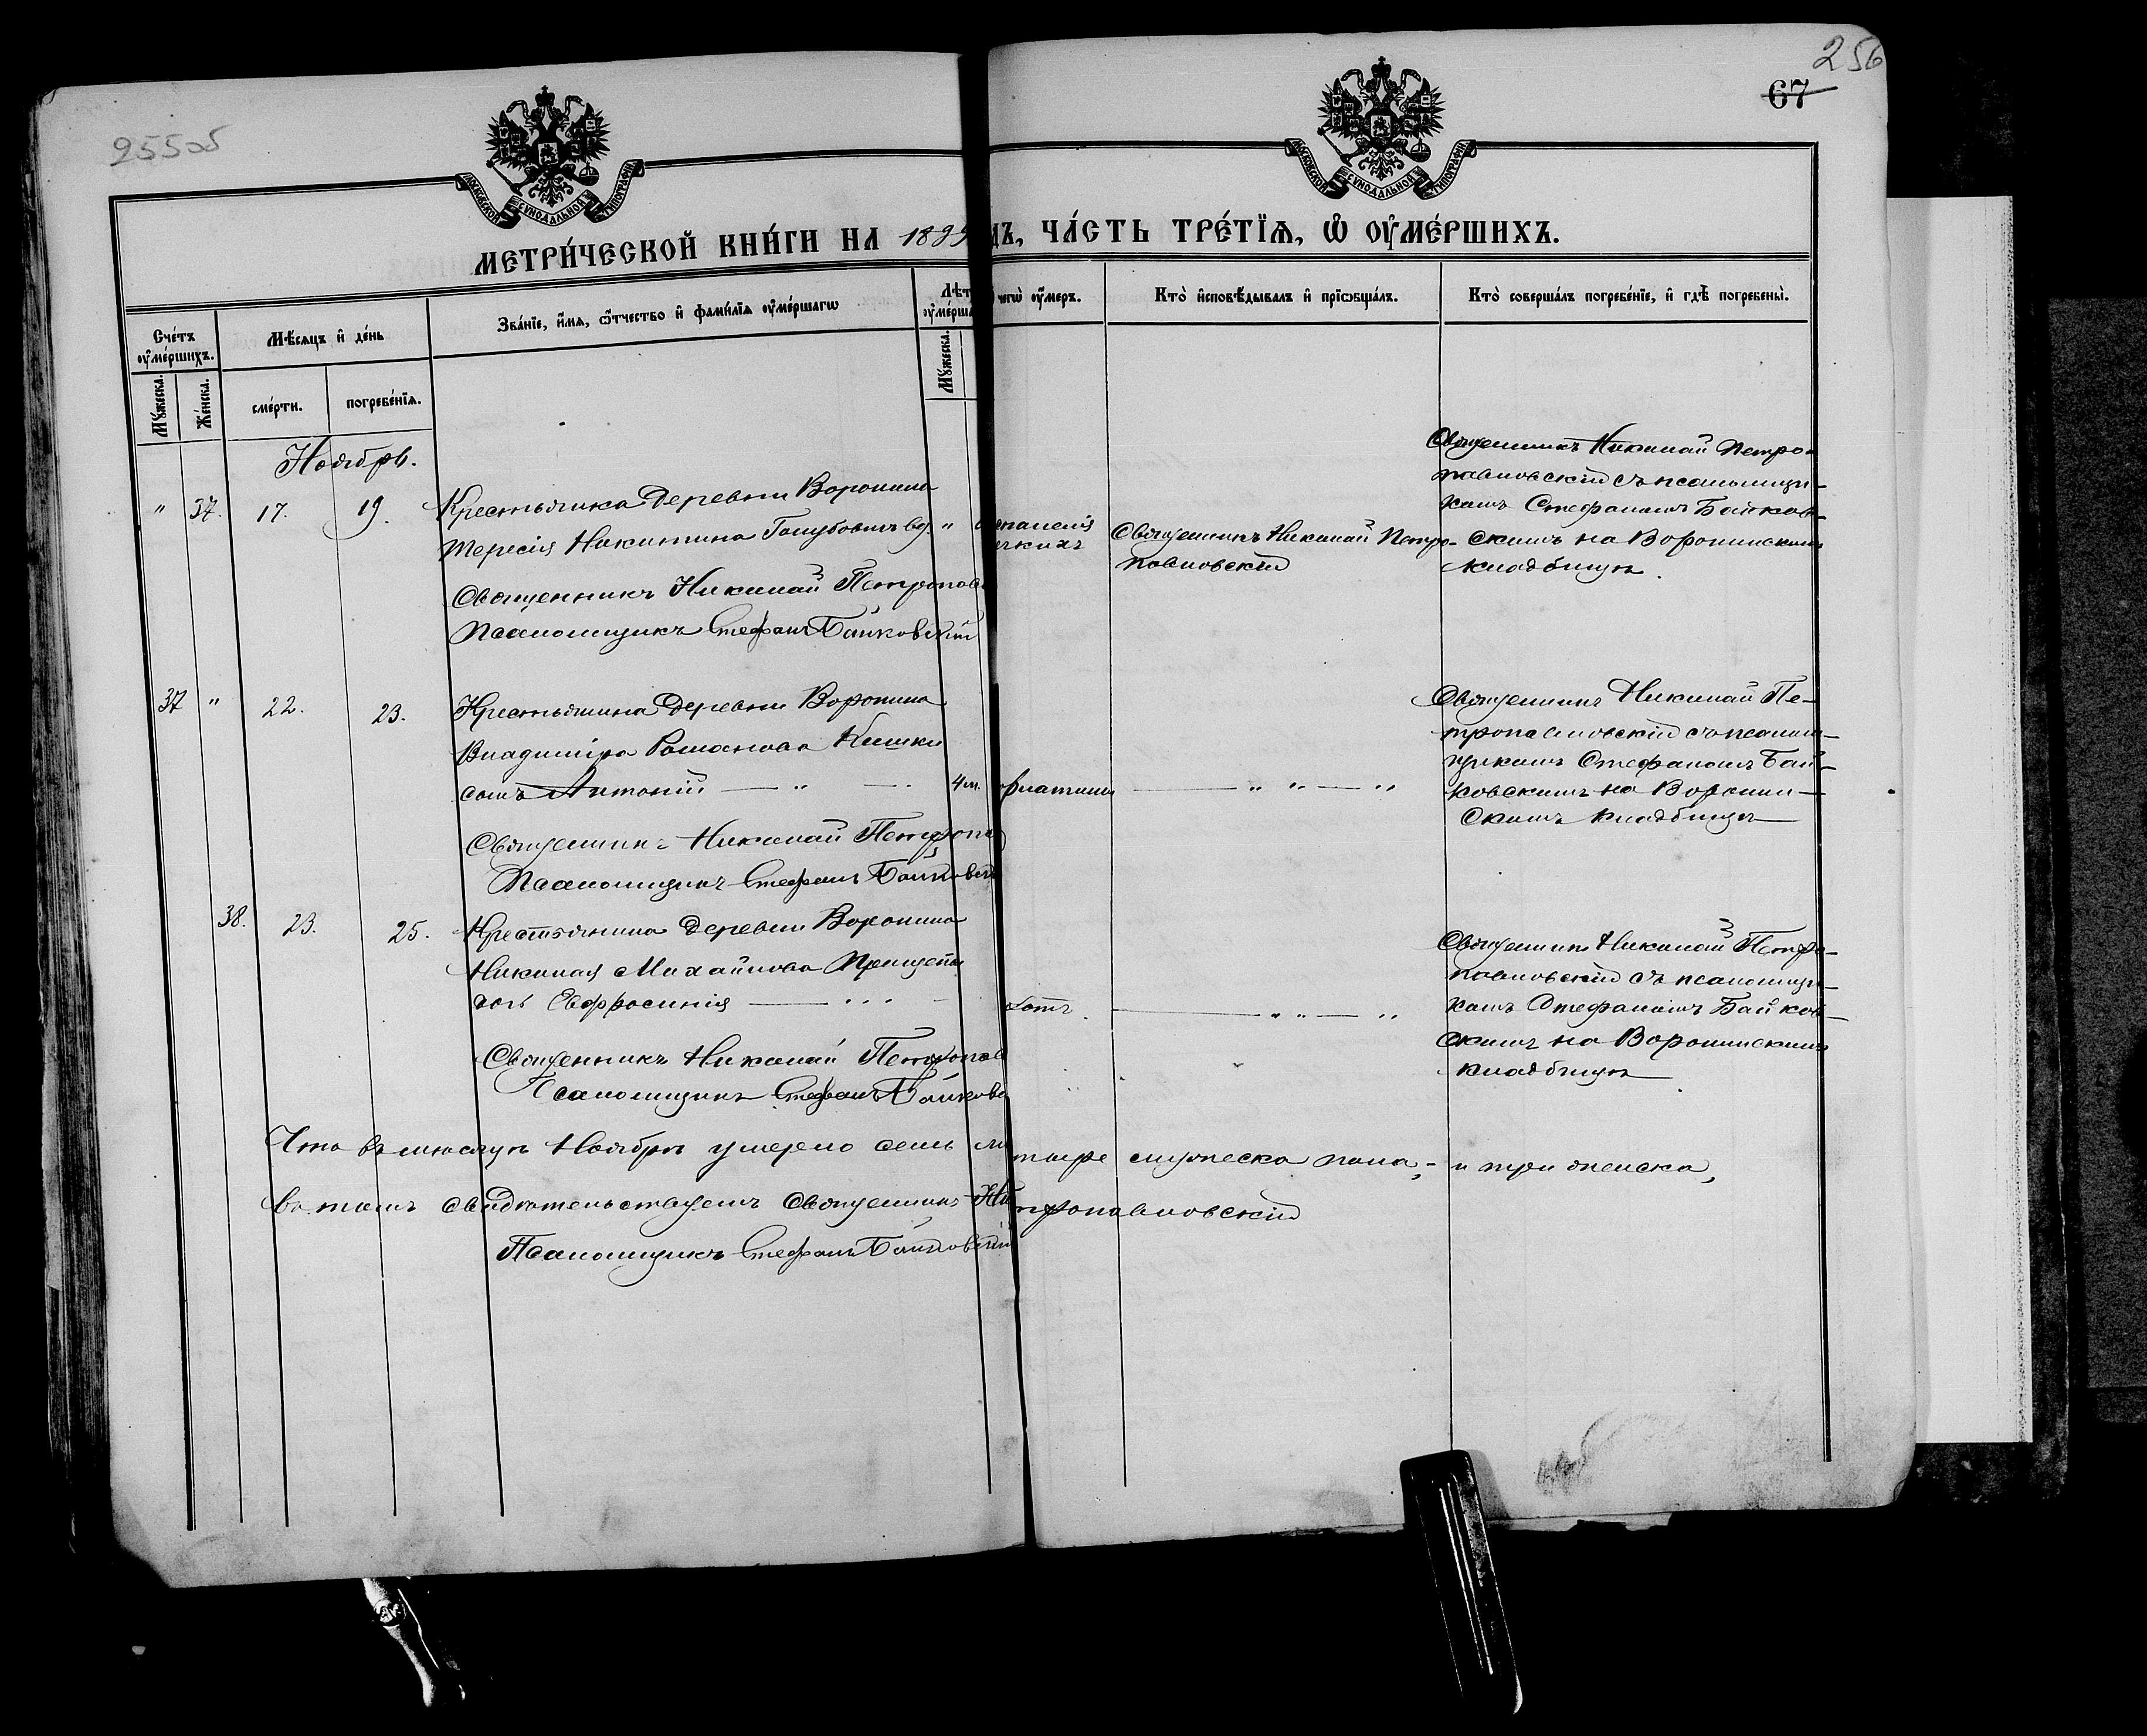 255об
256
67
МОСКОВСКОЙ СѴНОДАЛЬНОЙ ТИПОГРАФІИ
МОСКОВСКОЙ СѴНОДАЛЬНОЙ ТИПОГРАФІИ
МЕТРИ́ЧЕСКОЙ КНИ́ГИ НА 1899
ДЪ, ЧА́СТЬ ТРЕ́ТЇѦ, Ѽ ОУМЕ́РШИХЪ.
Сче́тъ оуме́ршихъ.
Мѣ́сѧцъ и де́нь
Зва́нїе, и́мѧ, ѻ҆́тчество и фами́лїѧ оуме́ршагѡ
Лѣт
оуме́рша
чегѡ̀ оу́меръ.
Кто̀ исповѣ́дывалъ и прїѡбща́лъ.
Кто̀ соверша́лъ погребе́нїе, и гдѣ̀ погребены̀.
Му́жеска.
Же́нска.
сме́рти.
погребе́нїѧ.
Му́жеска.
Ноябрь.
" 37. 17. 19. Крестьянка деревни Воронина
Тересія Никитина Голубовичъ вд. "
Священникъ Николай Петропав
Псаломщикъ Стефанъ Байковскій
паленія
Священникъ Николай Петро-
павловскій
Священникъ Николай Петро-
павловскій съ псаломщи-
комъ Стефаномъ Байков-
скимъ на Воронинскомъ
кладбищѣ.
37 " 22. 23. Крестьянина деревни Воронина
Владиміра Романова Кишки
сынъ Антоній — " — 4 м.
Священникъ Николай Петропа
Псаломщикъ Стефанъ Байковскі
— " " — "
Священникъ Николай Пе-
тропавловскій съ псалом-
щикомъ Стефаномъ Бай-
ковскимъ на Воронин-
скомъ кладбищѣ
38. 23. 25. Крестьянина деревни Воронина
Николая Михайлова
дочь Евфросинія — " "
Священникъ Николай Петропав
Псаломщикъ Стефанъ Байковс
— " " — "
Священникъ Николай Петро-
павловскій съ псаломщи-
комъ Стефаномъ Байков-
скимъ на Воронинскомъ
кладбищѣ
Что въ мѣсяцѣ Ноябрѣ умерло семь
тыре мужеска пола, - и три женска,
въ томъ свидѣтельствуемъ Священникъ Ни
тропавловскій
Псаломщикъ Стефанъ Байковскій